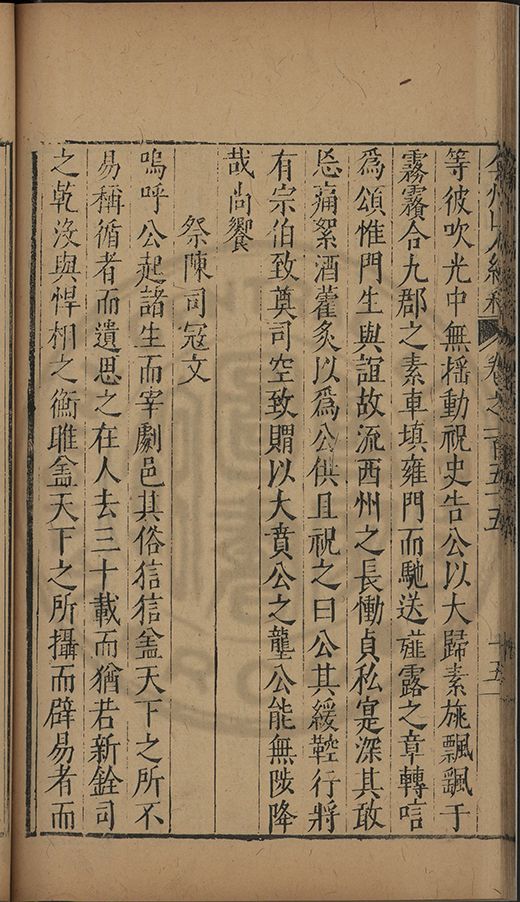 弇州山人續稿 卷之一百五十五 十五
等彼吹光中無揺動祝史告公以大歸素旐飄颻于
霧靄合九郡之素車填雍門而馳送薤露之章轉唁
爲頌惟門生與誼故流西州之長慟貞私寔深其敢
忘痛絮酒藿炙以爲公供且祝之曰公其緩鞚行將
有宗伯致奠司空致賵以大賁公之壟公能無陟降
哉尚饗
祭陳司冦文
嗚呼公起諸生而宰劇邑其俗狺狺盖天下之所不
易稱循者而遺思之在人去三十載而猶若新銓司
之乾没與悍相之衡睢盖天下之所攝而辟易者而